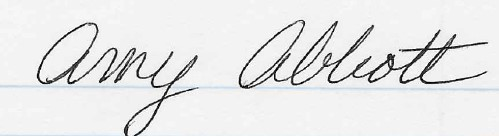 Amy Abbott